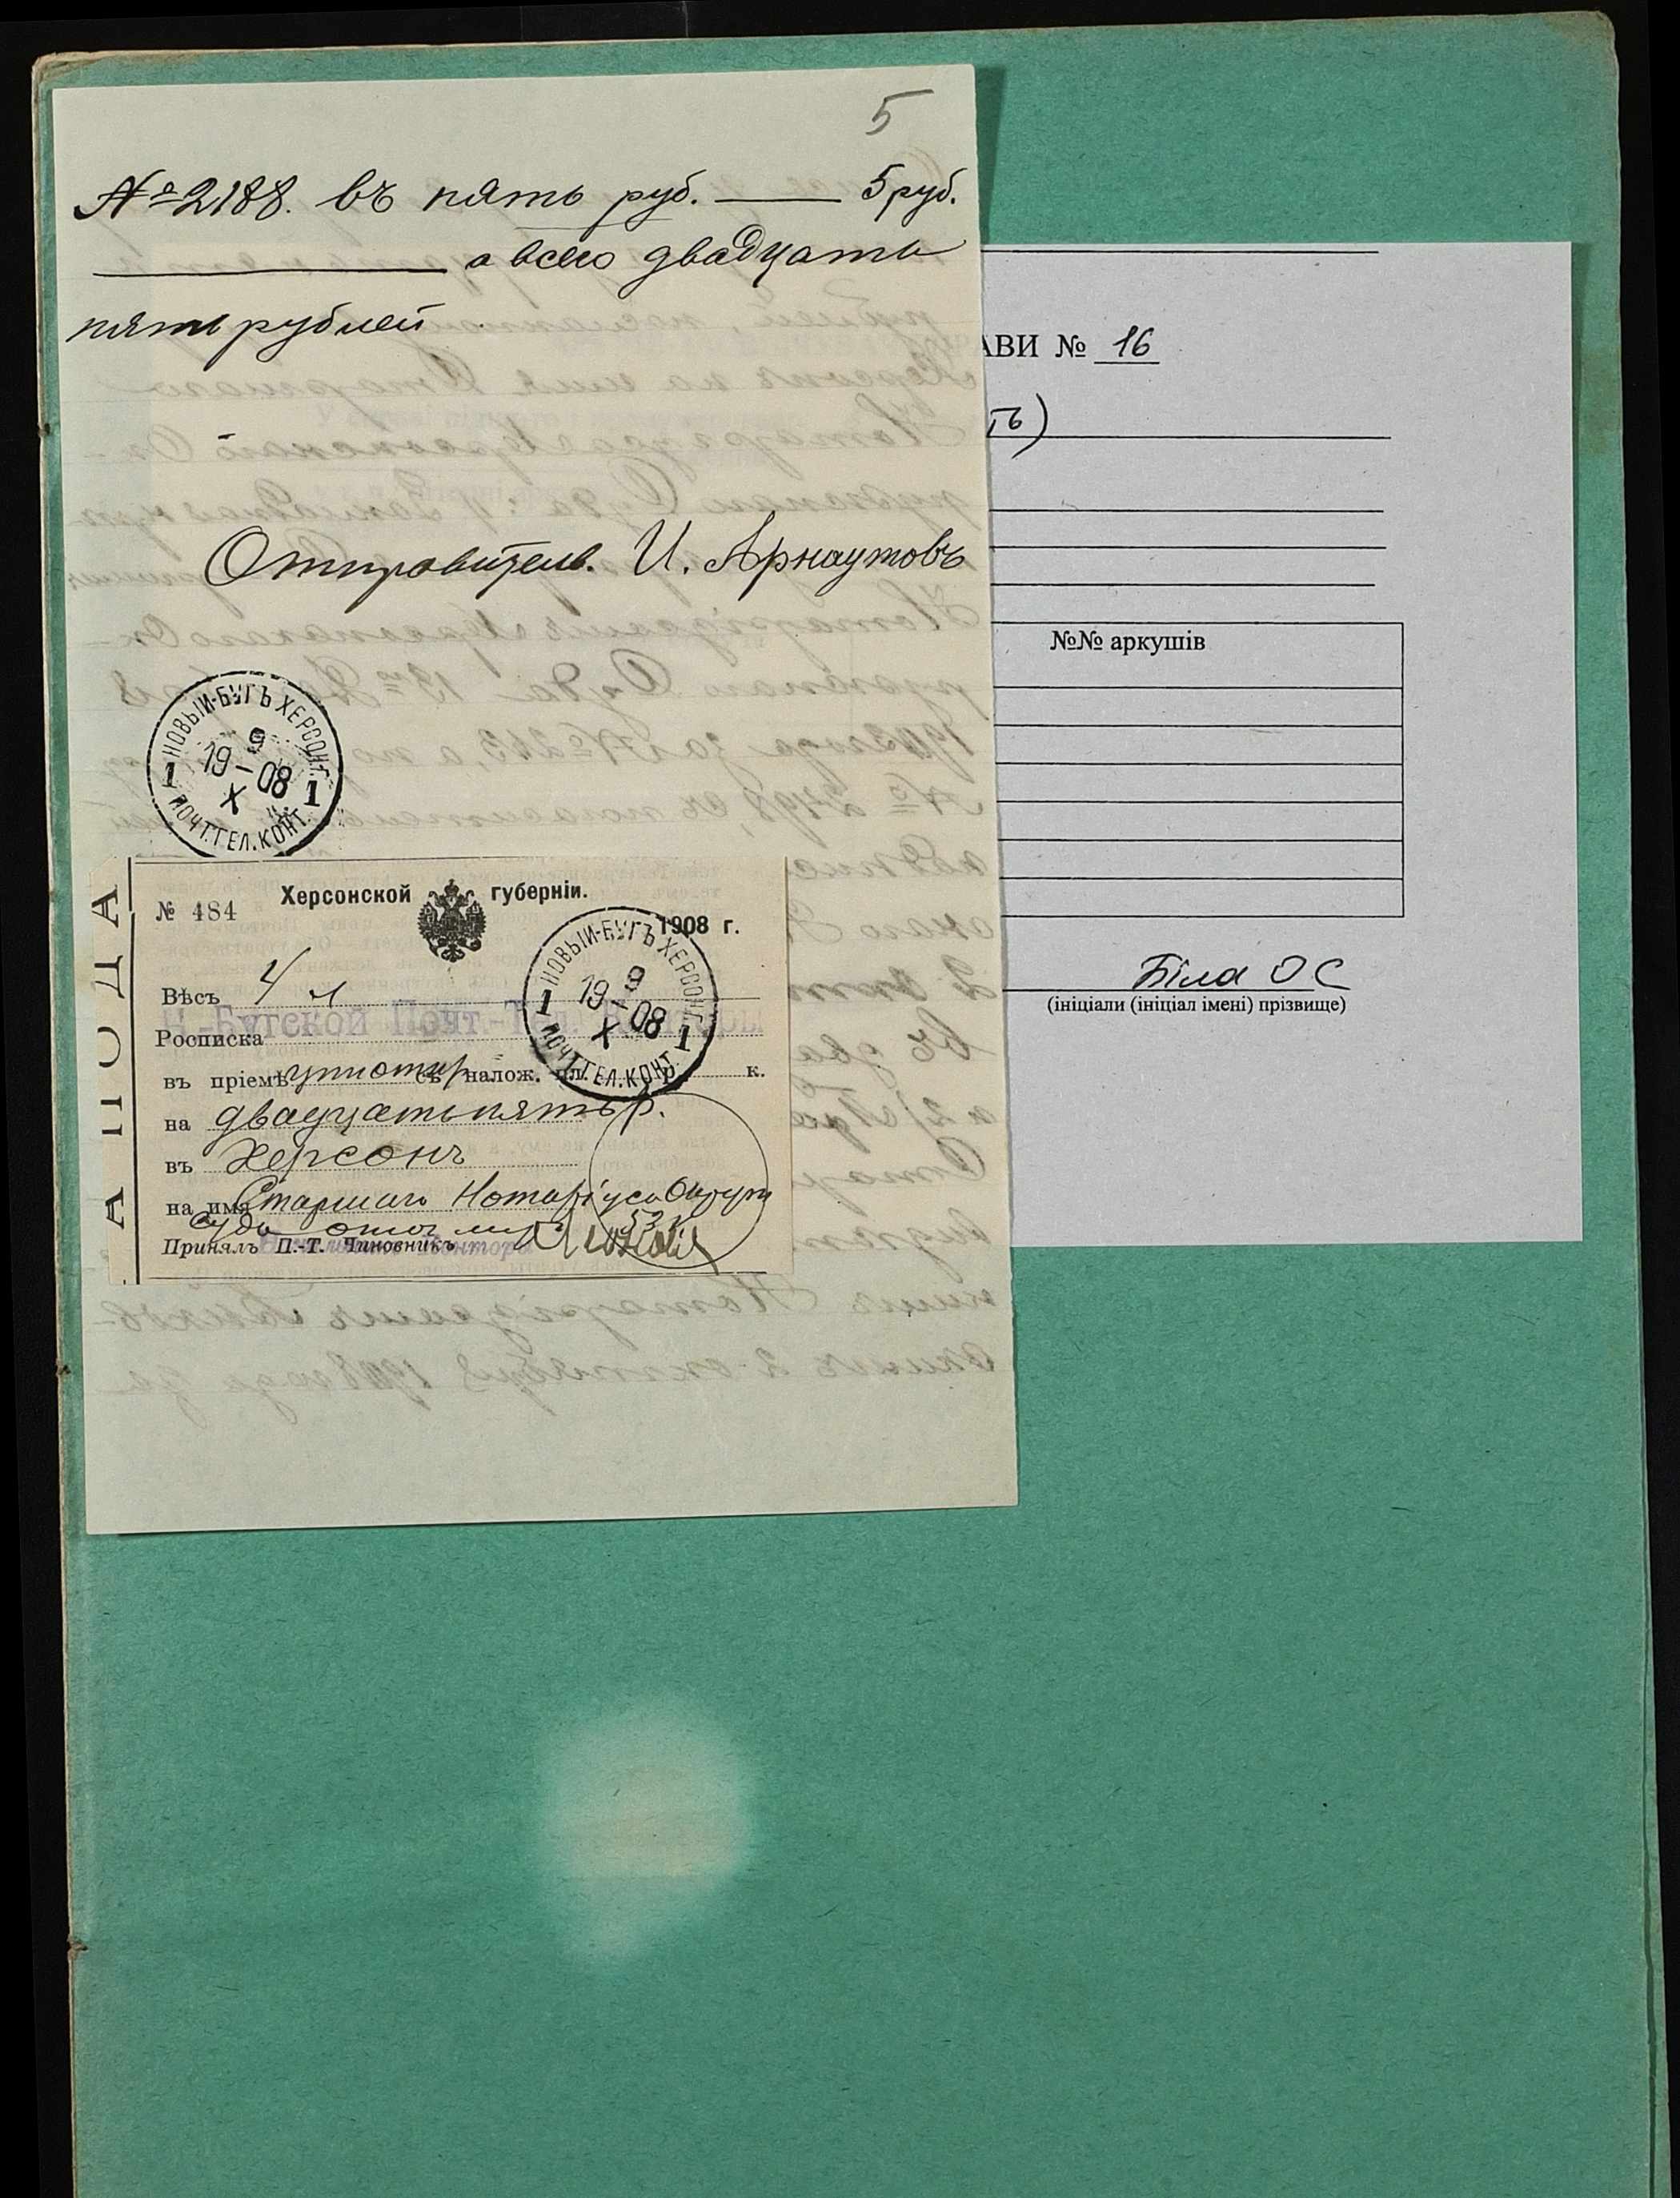 5
№ 2188. въ пять руб. —— 5 руб.
—— а всего двадцать
пять рублей
Отправитель. И. Арнаутовъ
НОВЫЙ-БУГЪ ХЕРСОН.Г.
9
19-08
X
1 1
ПОЧТ.ТЕЛ.КОНТ.
№ 484
Херсонской губерніи.
1908 г.
НОВЫЙ-БУГЪ ХЕРСОН.Г.
9
19-08
X
1 1
ПОЧТ.ТЕЛ.КОНТ.
Вѣсъ 4 л
Н.-Бугской Почт.-Тел. Конторы
Росписка
въ пріемѣ съ налож. пл. р. к.
на двадцать пять р.
въ Херсонъ
на имя Старшаго Нотаріуса Окруж
Суда отъ
Принялъ П.-Т. Чиновникъ
АВИ № 16
ть)
№№ аркушів
Біла О С
(ініціали (ініціал імені) прізвище)